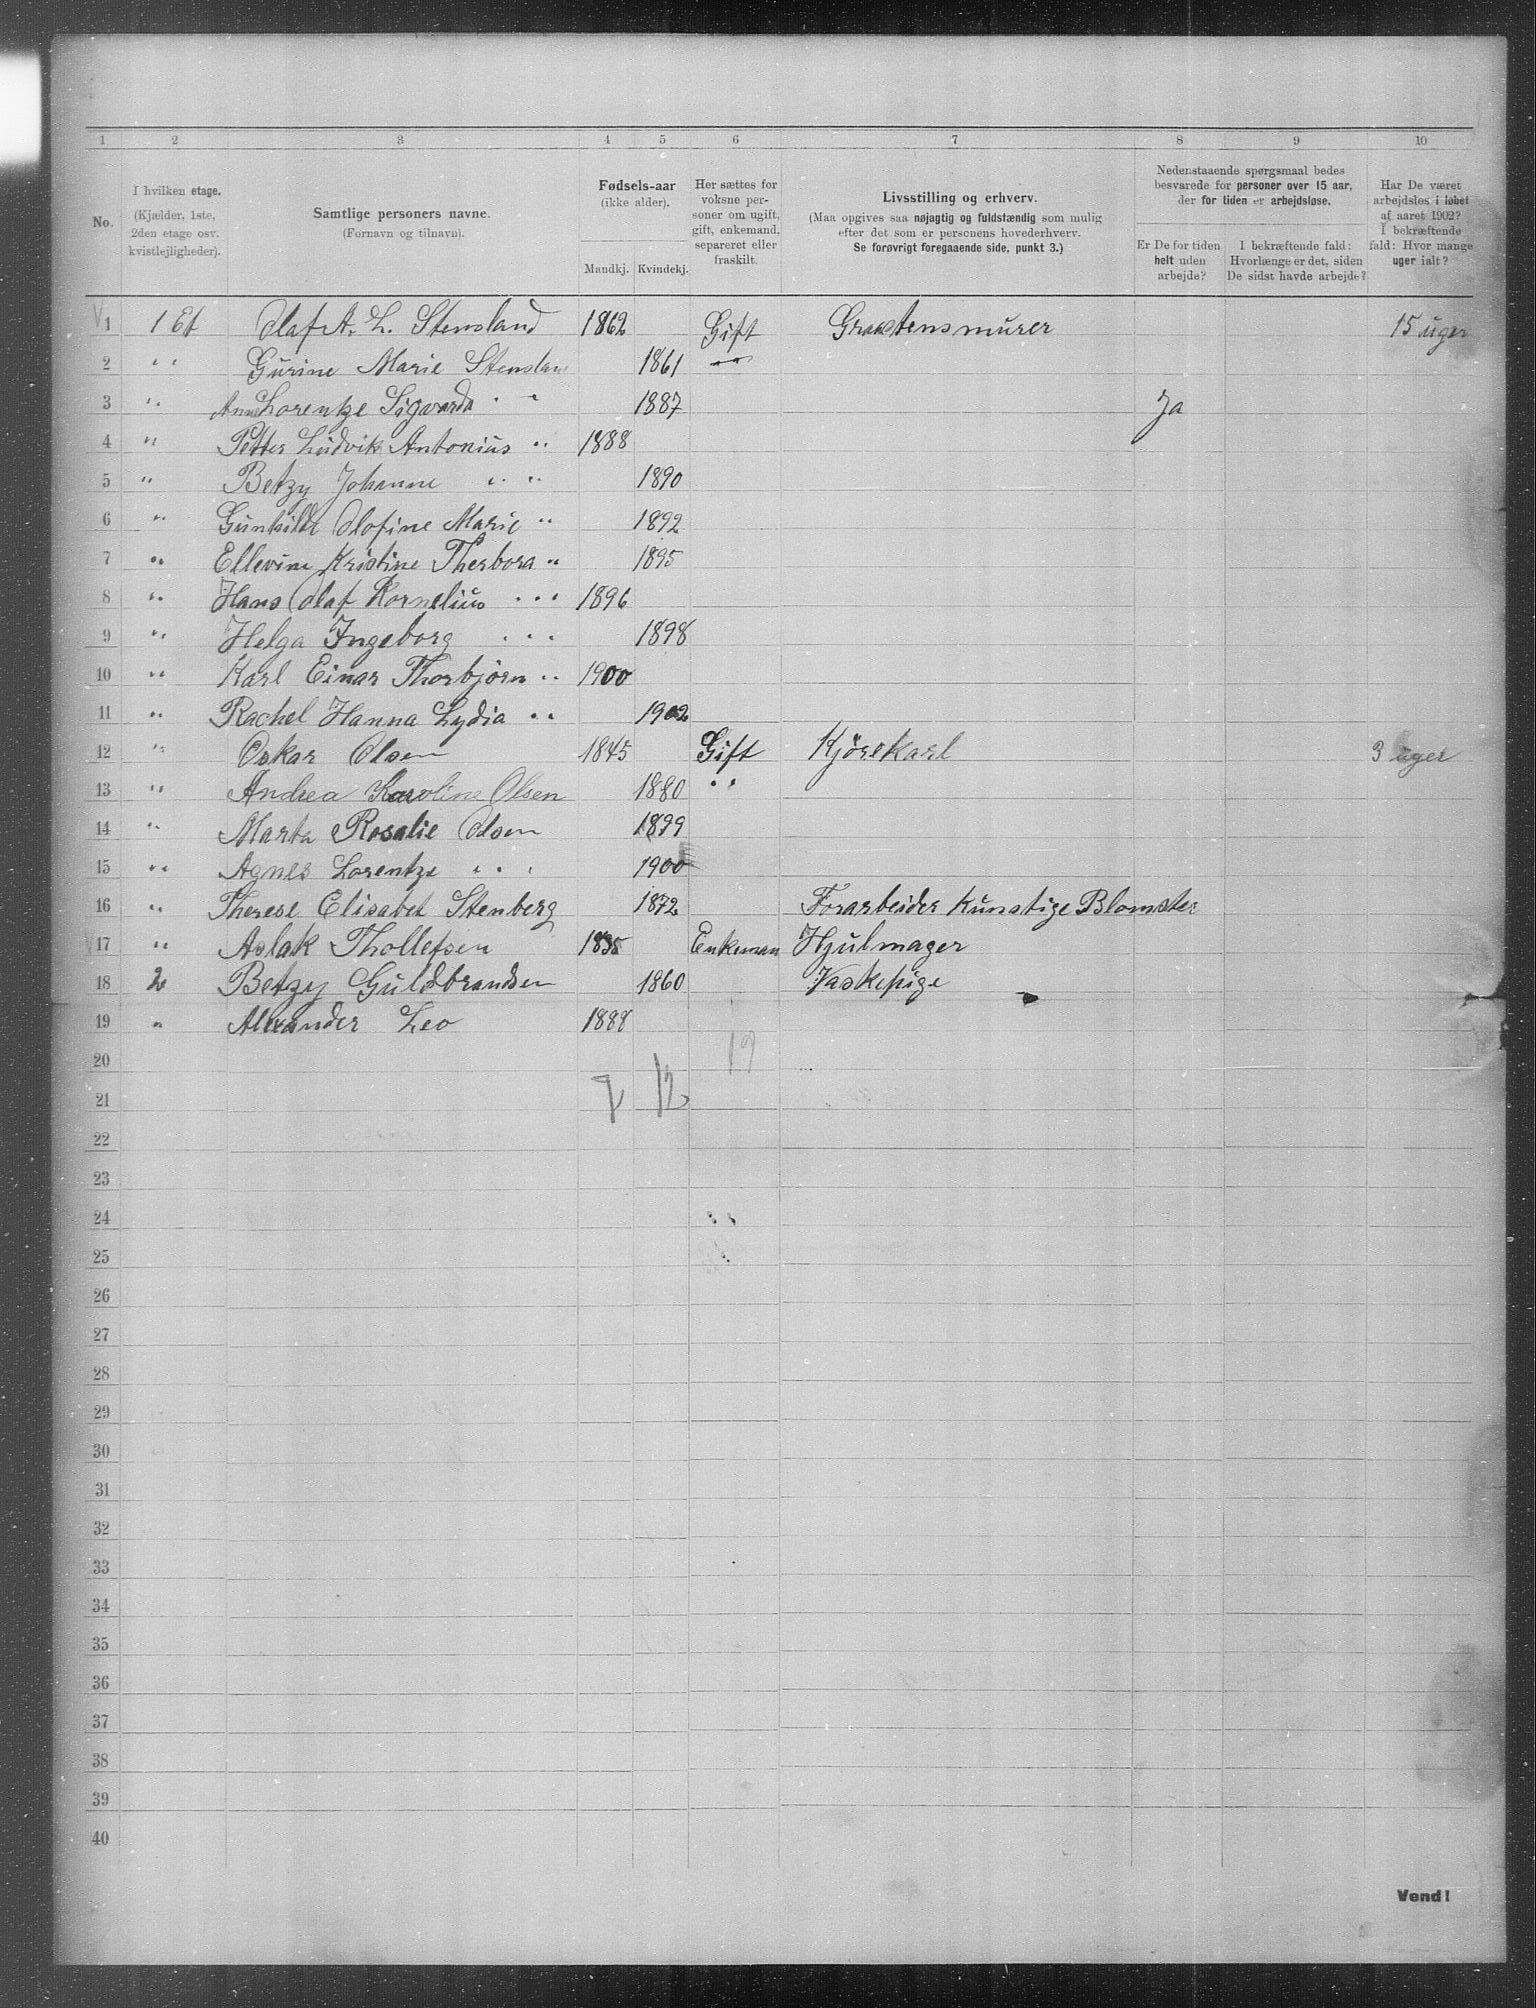 1 2 3 4 5 6 7 8 9 10
No.
I hvilken etage.
(Kjælder, 1ste,
2den etage osv.
kvistlejligheder).
Samtlige personers navne.
(Fornavn og tilnavn).
Fødsels-aar
(ikke alder).
Mandkj. Kvindekj.
Her sættes for
voksne per-
soner om ugift,
gift, enkemand,
separeret eller
fraskilt.
Livsstilling og erhverv.
(Maa opgives saa nøjagtig og fuldstændig som mulig
efter det som er personens hovederhverv.
Se forøvrigt foregaaende side, punkt 3.)
Nedenstaaende spørgsmaal bedes
besvarede for personer over 15 aar,
der for tiden er arbejdsløse.
Er De for tiden
helt uden
arbejde?
I bekræftende fald:
Hvorlænge er det, siden
De sidst havde arbejde?
Har De været
arbejdsløs i løbet
af aaret 1902?
I bekræftende
fald: Hvor mange
uger ialt?
1 1 Et Olaf A. L. Stensland 1862 Gift Graastensmurer 15 uger
2 " Gurine Marie Stensland 1861 "
3 " Anna Lorentze Sigvarda " " 1887 Ja
4 " Petter Ludvik Antonius " 1888
5 " Betzy Johanne " " 1890
6 " Gunhilde Olofine Marie " 1892
7 " Ellevine Kristine Therbora " 1895
8 " Hans Olaf Kornelius " " 1896
9 " Helga Ingeborg " " 1898
10 " Karl Einar Thorbjørn " 1900
11 " Rachel Hanna Lydia " 1902
12 " Oskar Olsen 1845 Gift Kjørekarl 3 uger
13 " Andrea Karoline Olsen 1880 "
14 " Marta Rosalie Olsen 1899
15 " Agnes Lorentze " " 1900
16 " Therese Elisabet Stenberg 1872 Forarbeider Kunstige Blomster
17 " Aslak Thollefsen 1835 Enkeman Hjulmager
18 2 Betzy Guldbrandsen 1860 Vaskepige
19 " Alexander Leo 1888
20 19
21 7 12
22
23
24
25
26
27
28
29
30
31
32
33
34
35
36
37
38
39
40
Vend!